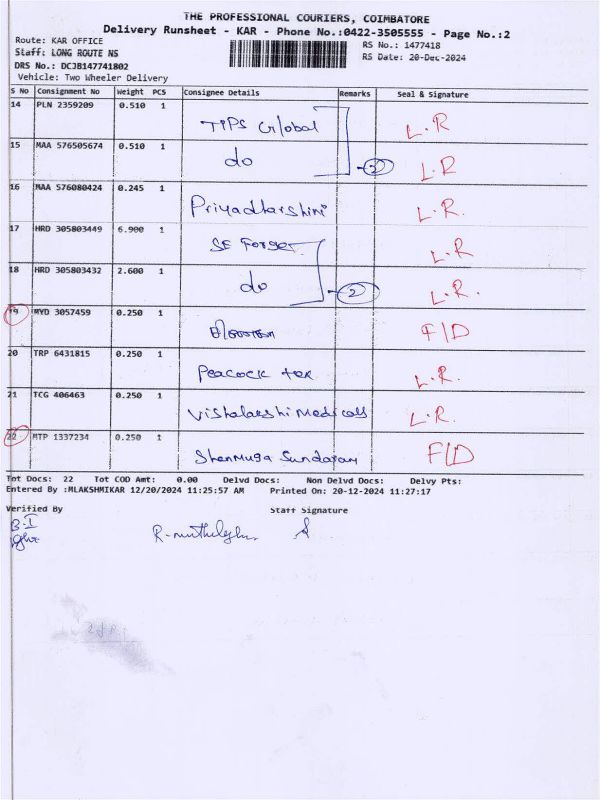 THE PROFESSIONAL COURIERS, COIMBATORE
Delivery Runsheet - KAR - Phone No.:0422-3505555 - Page No.:2
Route: KAR OFFICE
RS No.: 1477418
Staff: LONG ROUTE NS
RS Date: 20-Dec-2024
DRS No.: DCJB147741802
Vehicle: Two Wheeler Delivery
S No Consignment No Weight PCS Consignee Details Remarks Seal & Signature
14 PLN 2359209 0.510 1 TIPS Global L.R
15 MAA 576505674 0.510 1 do 2 L.R
16 MAA 576080424 0.245 1 Priyadharshini L.R.
17 HRD 305803449 6.900 1 SE Forge L.R
18 HRD 305803432 2.600 1 do 2 L.R.
19 MYD 3057459 0.250 1 F/D
20 TRP 6431815 0.250 1 Peacock tex L.R.
21 TCG 406463 0.250 1 Vishalakshi Medicals L.R.
22 MTP 1337234 0.250 1 Shanmuga Sundaram F/D
Tot Docs: 22 Tot COD Amt: 0.00 Delvd Docs: Non Delvd Docs: Delvy Pts:
Entered By :MLAKSHMIKAR 12/20/2024 11:25:57 AM Printed On: 20-12-2024 11:27:17
Verified By Staff Signature